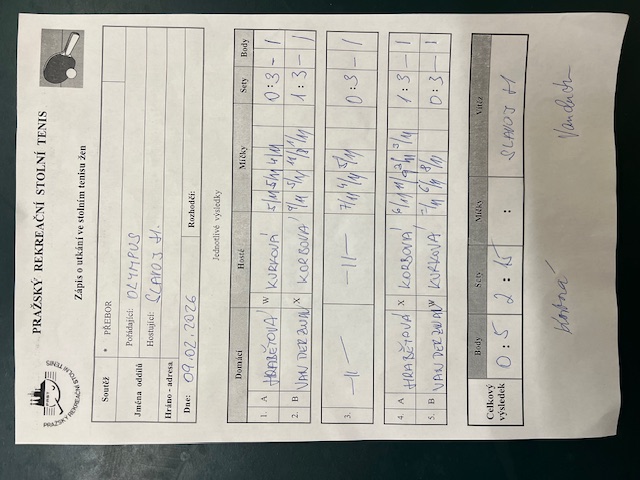 PRAŽSKÝ REKREAČNÍ STOLNÍ TENIS
Zápis o utkání ve stolním tenisu žen
PRAŽSKÝ REKREAČNÍ STOLNÍ TENIS
Soutěž * PŘEBOR
Jména oddílů Pořádající: OLYMPUS
Hostující: SLAVOJ H.
Hráno - adresa
Dne: 09.02.2026 Rozhodčí:
Jednotlivé výsledky
Domácí Hosté Míčky Sety Body
1. A HRABĚTOVÁ W KURKOVÁ 5/11 5/11 4/11 0:3 - 1
2. B VAN DER X KORBOVÁ 9/11 5/11 1:3 - 1
3. -11- -11- 7/11 5/11 0:3 - 1
4. A HRABĚTOVÁ X KORBOVÁ 1:3 - 1
5. B VAN DER W KURKOVÁ 8/11 0:3 - 1
Celkový výsledek Body Sety Míčky Vítěz
0:5 2:15 : SLAVOJ H